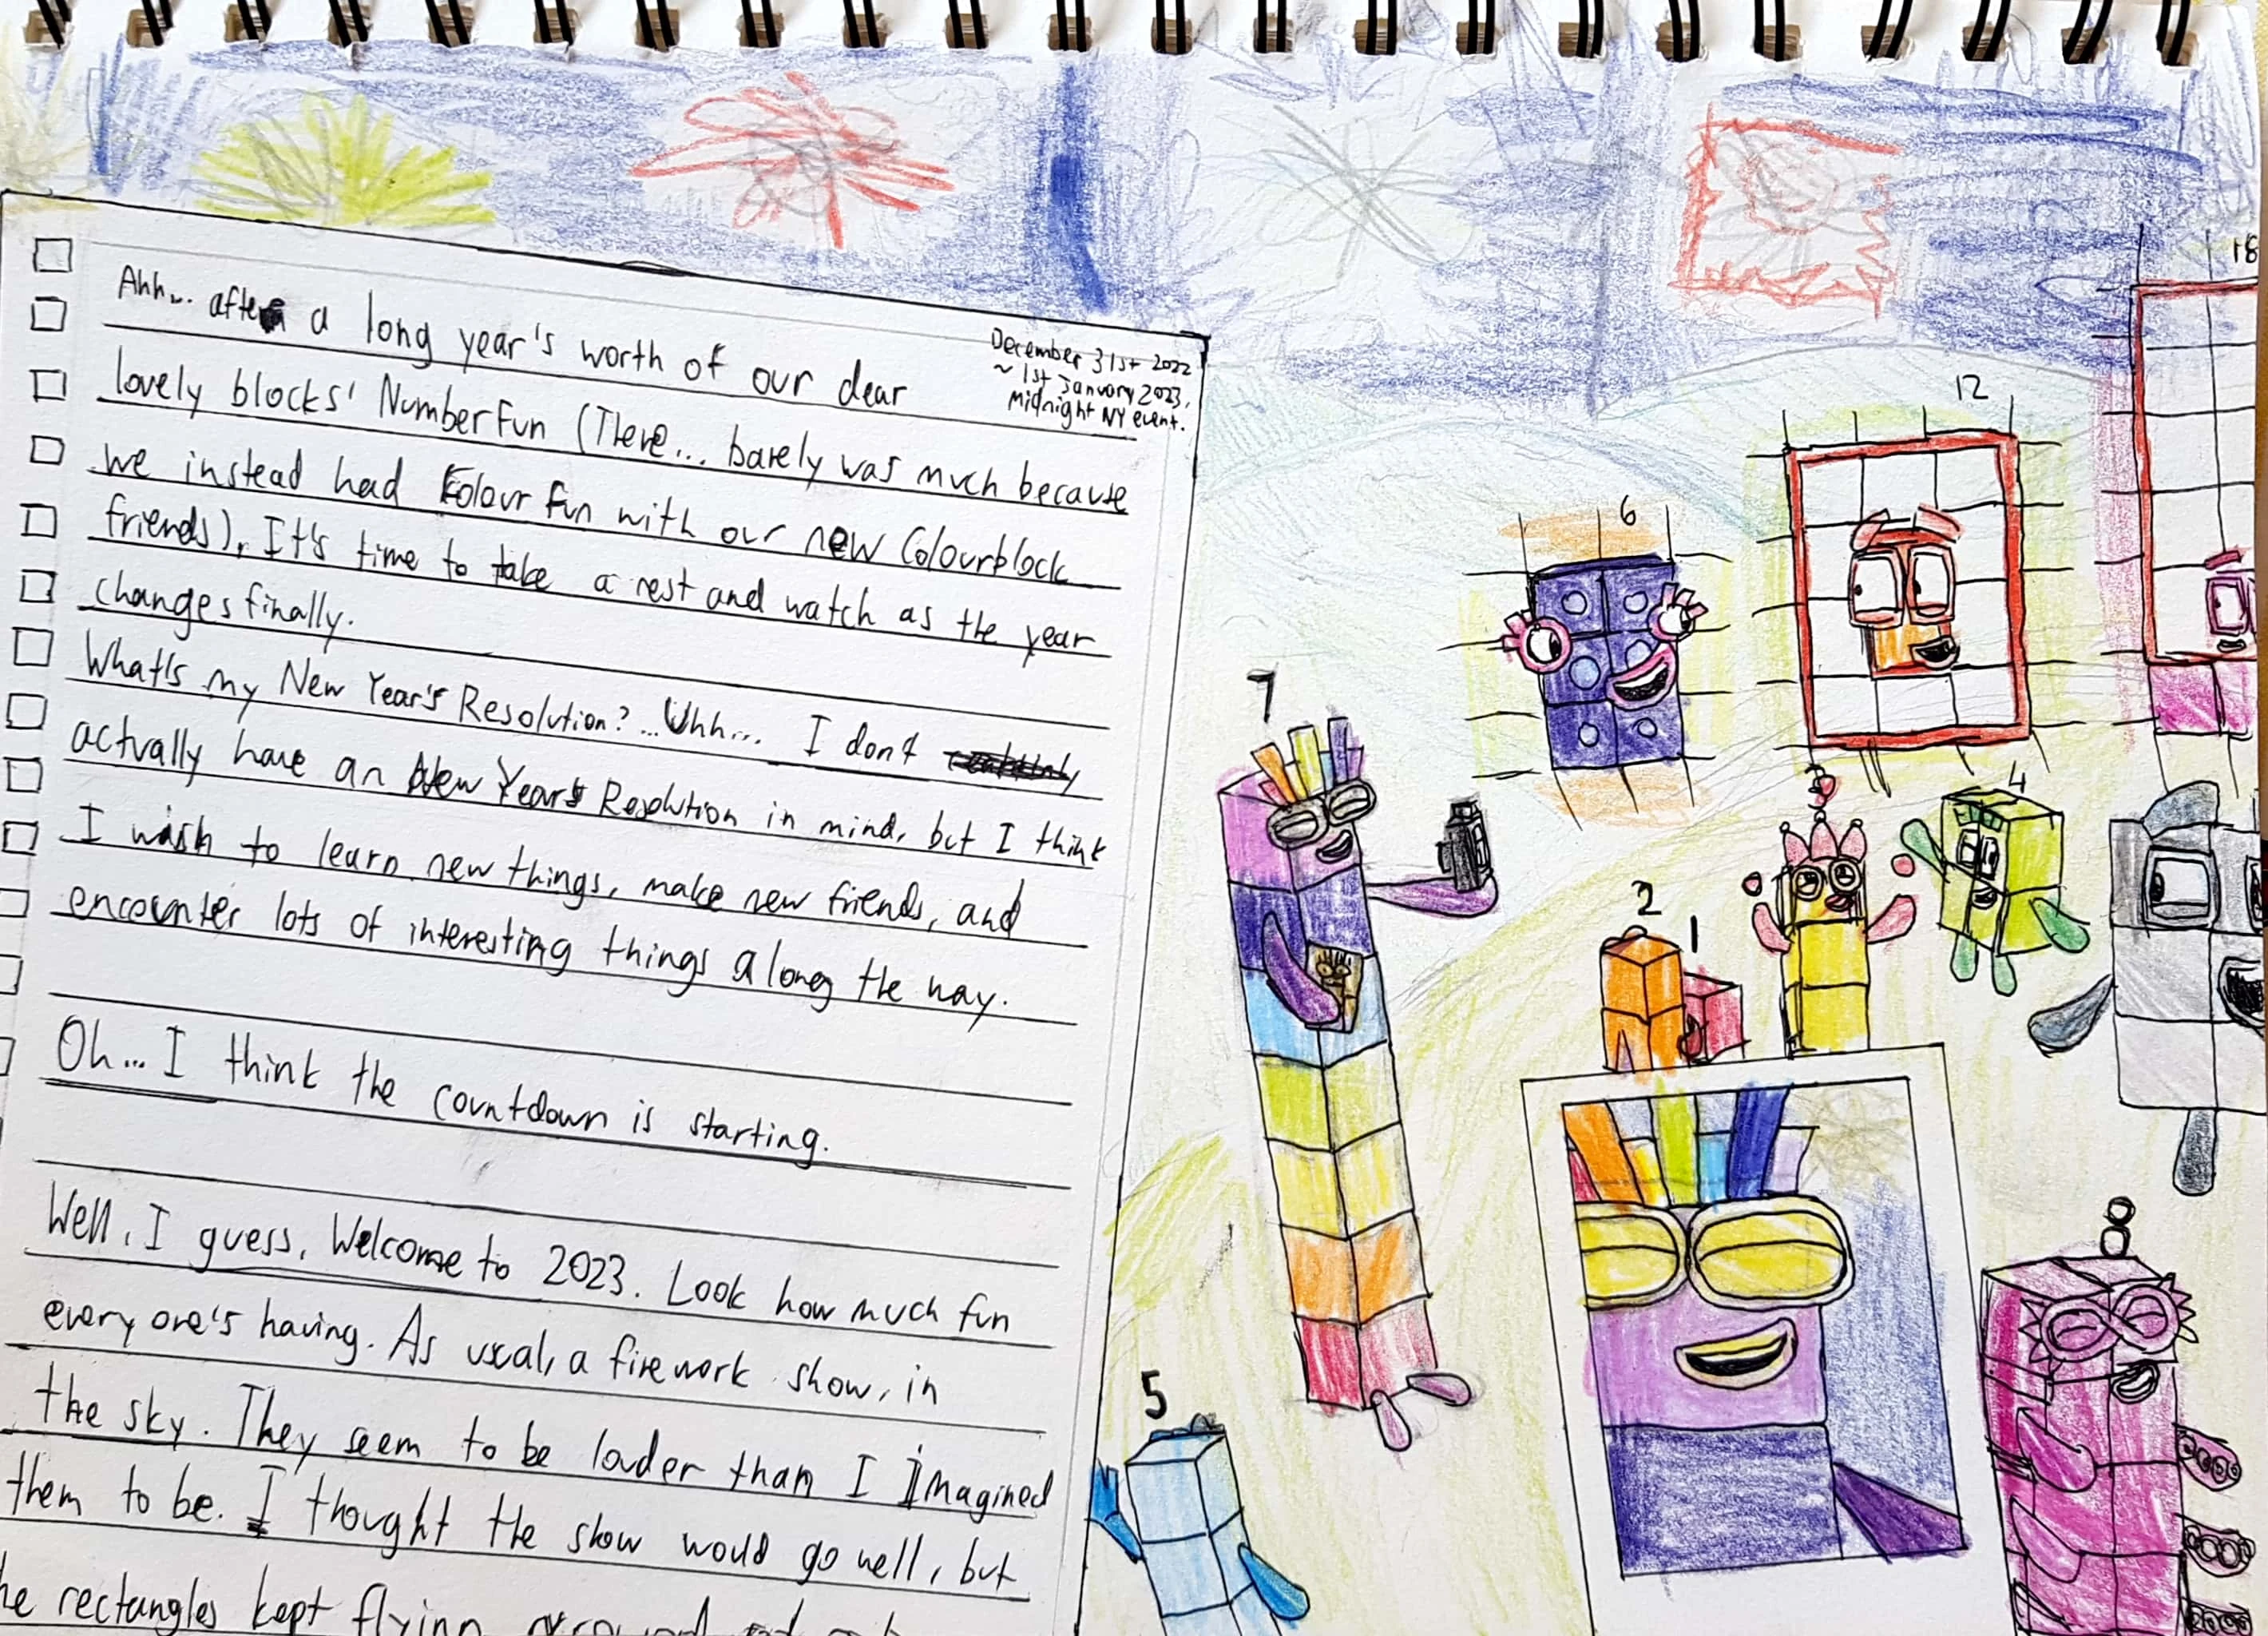 Ahh... after a long year's worth of our dear
December 31st 2022
~ 1st January 2023,
Midnight NY event.
lovely blocks' NumberFun (There... barely was much because
we instead had Colour Fun with our new Colourblock
friends), It's time to take a rest and watch as the year
changes finally.
What's my New Year's Resolution? ...Uhh... I don't
actually have an New Year's Resolution in mind, but I think
I wish to learn new things, make new friends, and
encounter lots of interesting things along the way.
Oh... I think the countdown is starting.
Well, I guess, Welcome to 2023. Look how much fun
everyone's having. As usual, a firework show, in
the sky. They seem to be louder than I imagined
them to be. I thought the show would go well, but
rectangles kept flying
18
12
6
7
4
3
2
1
5
8